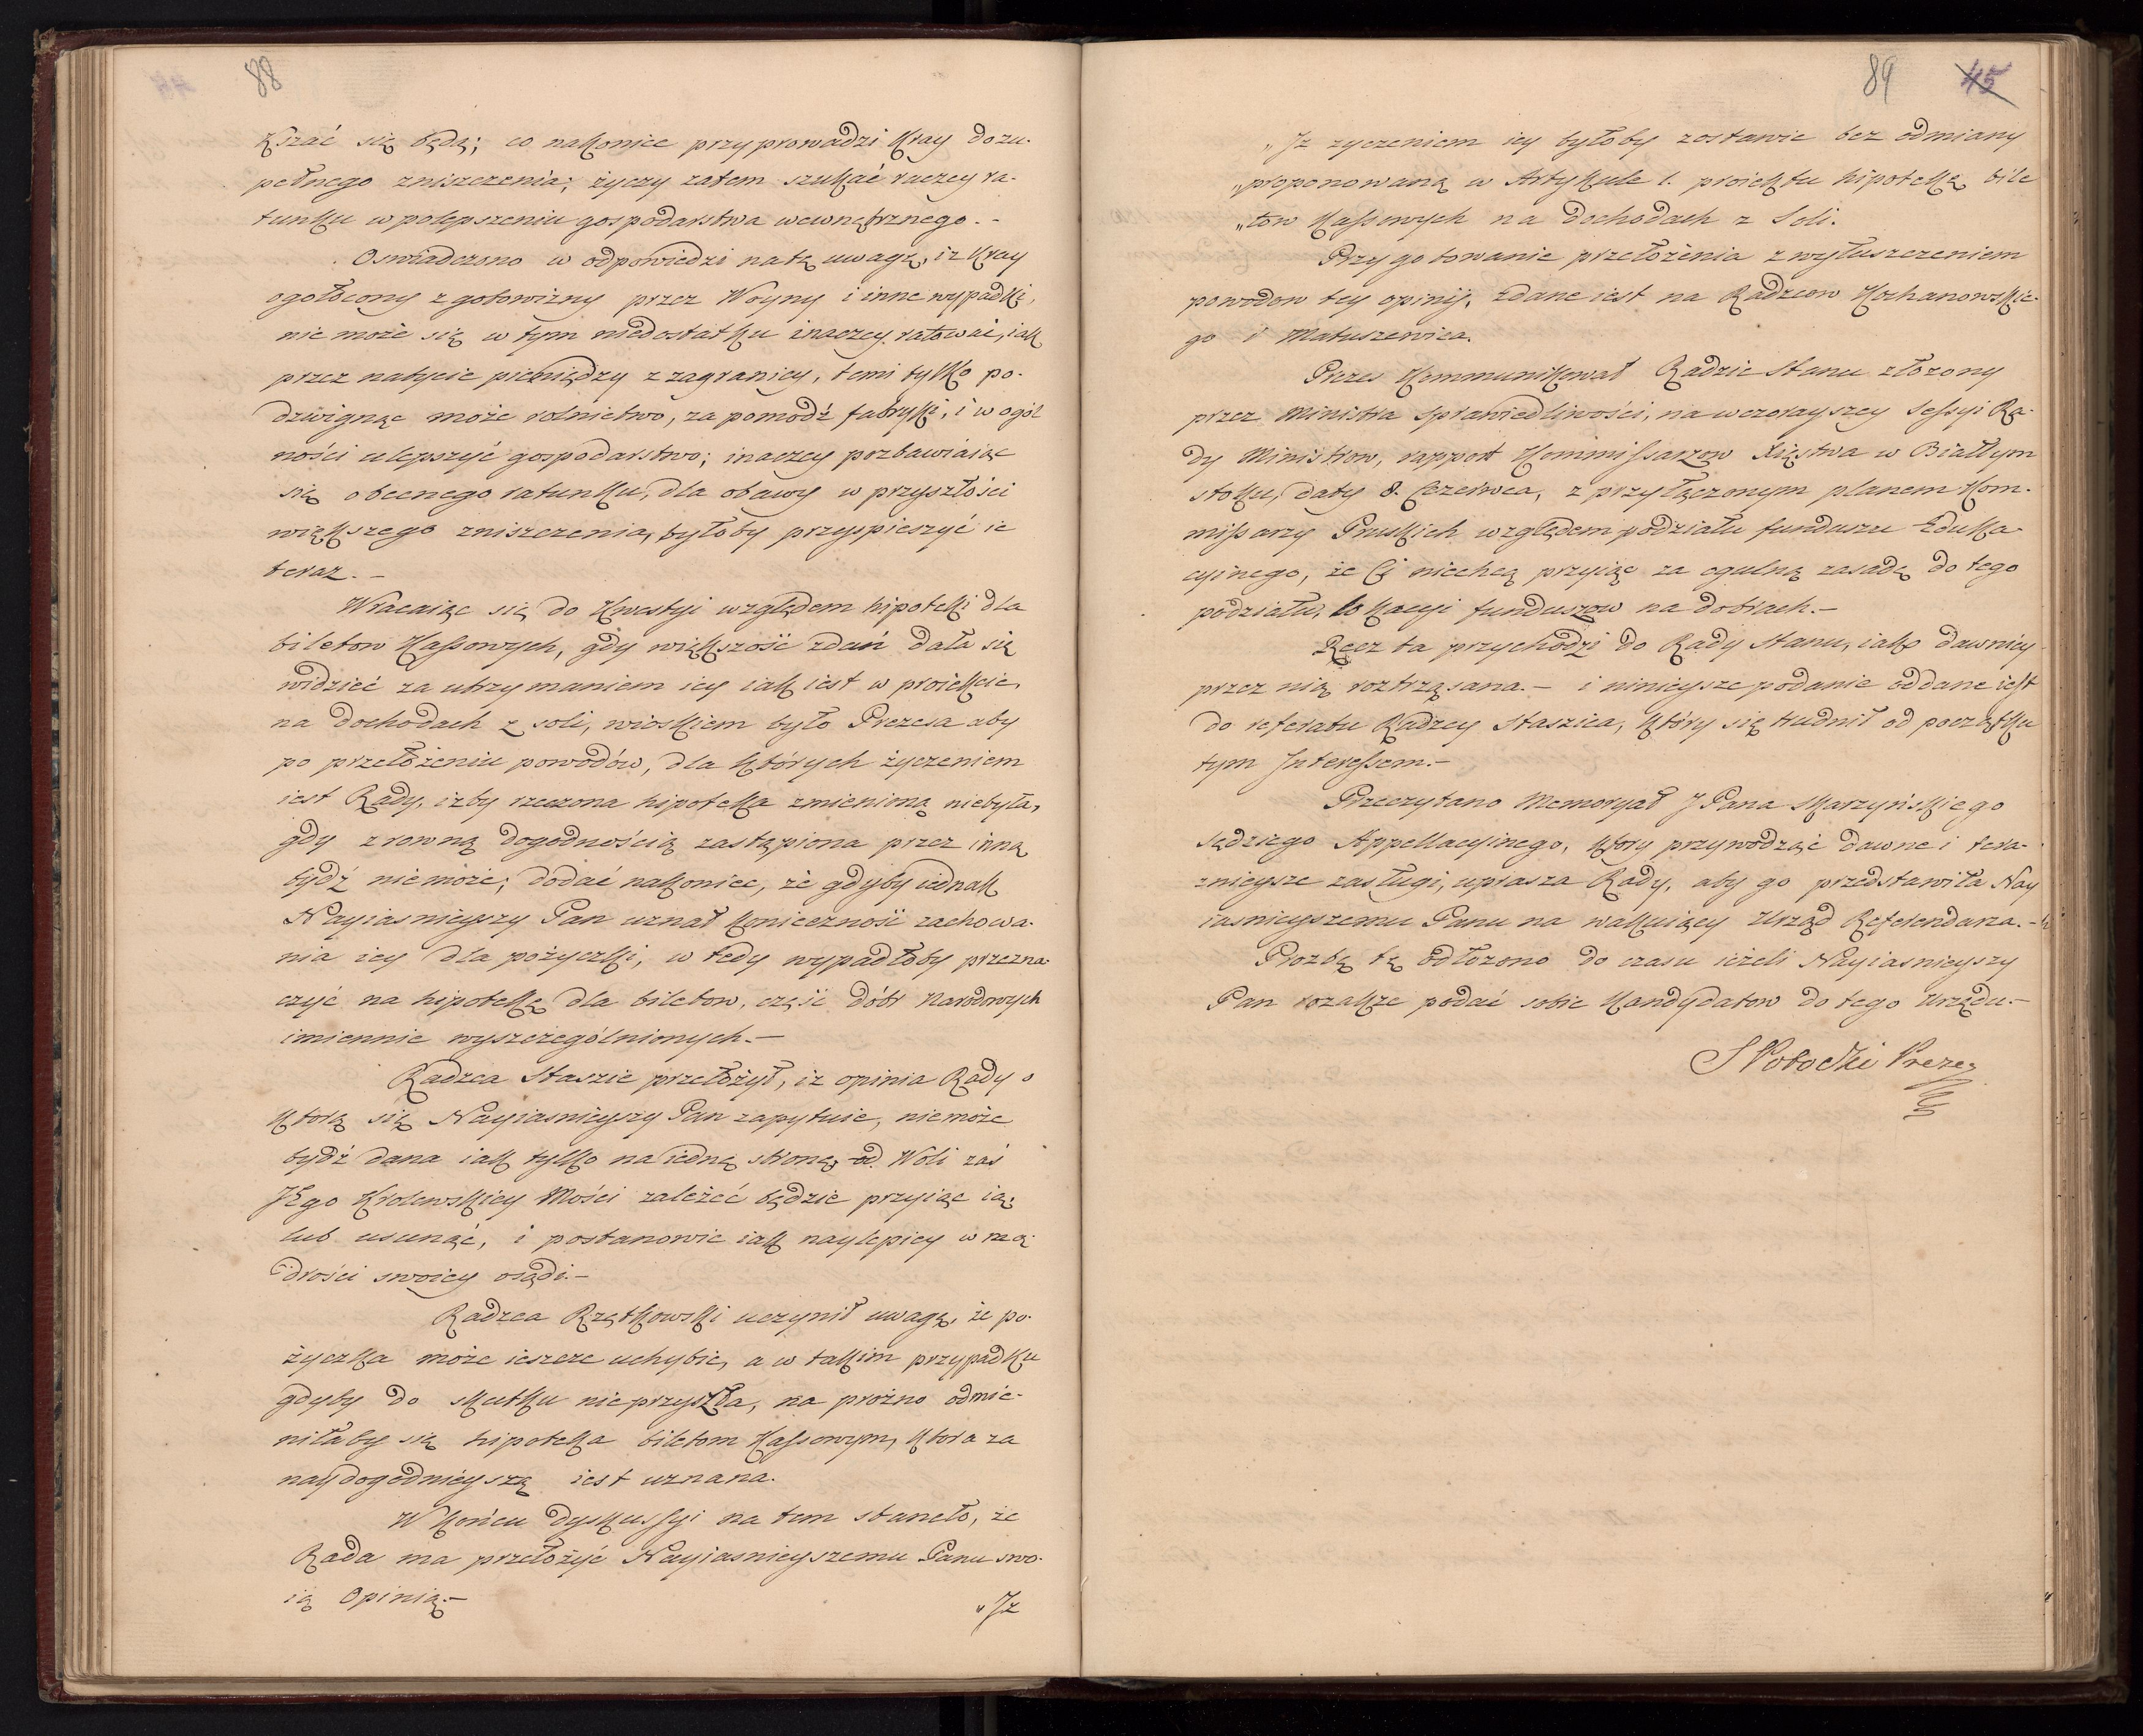 88
kszać się będą; co nakoniec przyprowadzi kray dozu-
pełnego zniszczenia; życzy zatem szukać raczey ra-
tunku w polepszeniu gospodarstwa wewnętrznego.-
Oswiadczono w odpowiedzi na tę uwagę, iż kray
ogołocony z gotowizny przez Woyny i inne wypadki,
nie może się w tym niedostatku inaczey ratować, iak
przez nabycie pieniędzy z zagranicy, temi tylko po-
dzwignąc może rolnictwo, za pomodź fabryki, i w ogól
ności ulepszyć gospodarstwo; inaczey pozbawiaiąc
się obecnego ratunku, dla obawy w przyszłości
większego zniszczenia, byłoby przyspieszyć ie
teraz.-
Wracaiąc się do kwestyi względem hipoteki dla
biletow Kassowych, gdy większość zdań dała się
widzieć za utrzymaniem iey iak iest w proiekcie,
na dochodach z soli, wioskiem było Prezesa aby
po przełożeniu powodów, dla których życzeniem
iest Rady, iżby rzeczona hipoteka zmienioną niebyła,
gdy z rowną dogodnością zastąpiona przez inną
bydź nie może; dodać nakoniec, że gdyby iednak
Nayiasnieyszy Pan uznał konieczność zachowa-
nia iey dla pożyczki, w tedy wypadłoby przezna-
czyć na hipotekę dla biletow, część dóbr Narodowych
imiennie wyszczególnionych.-
Radzca Staszic przełożył, iż opinia Rady o
ktorą się Nayiasnieyszy Pan zapytuie, nie może
bydź dana iak tylko na iedną stronę, od Woli zaś
JEgo Krolewskiey Mości zależeć będzie przyiąc ią,
lub usunąć, i postanowic iak naylepiey w mą-
drości swoiey osądi.-
Radzca Rzętkowski uczynił uwagę, że po-
życzka może ieszcze uchybić, a w takim przypadku
gdyby do skutku nieprzyszła, na prożno odmie-
niłaby się hipoteka biletom Kassowym, ktora za
naydogodnieyszą iest uznana.
W końcu dyskussyi na tem staneło, że
Rada ma przełożyć Nayiasnieyszemu Panu swo-
ią Opinią.-
„Jż
89 45
„Jż zyczeniem iey byłoby zostawic bez odmiany
„proponowaną w Artykule 1. proiektu hipotekę bile
„tow Kassowych na dochodach z Soli.
Przygotowanie przełożenia z wyłuszczeniem
powodow tey opinij, zdane iest na Radzcow Kochanowskie-
go i Matuszewica.
Prezes Kommunikował Radzie Stanu złożony
przez Ministra Sprawiedliwości, na wczorayszey Sessyi Ra-
dy Ministrow, rapport Kommissarzow Xięstwa w Białłym
stoku, daty 8. Czerwca, z przyłączonym planem Kom-
missarzy Pruskich względem podziału funduszu Eduka-
cyinego, że Cj niechcą przyiąc za ogulną zasadę do tego
podziału, lokacyi funduszow na dobrach.-
Rzecz ta przychodzi do Rady Stanu, iako dawniey
przez nią roztrząsana.- i ninieysze podanie oddane iest
do referatu Radzcy Staszica, który się trudnił od początku
tym Interessem.-
Przeczytano Memoryał JPana Skarzyńskiego
sędziego Appellacyinego, ktory przywodząc dawne i tera-
znieysze zasługi, uprasza Rady, aby go przedstawiła Nay
iasnieyszemu Panu na wakuiący Urząd Referendarza.-
Prozbę tę odłożono do czasu ieżeli Nayiasnieyszy
Pan rozakże podać sobie Kandydatow do tego urzędu.-
S Potocki Prezes